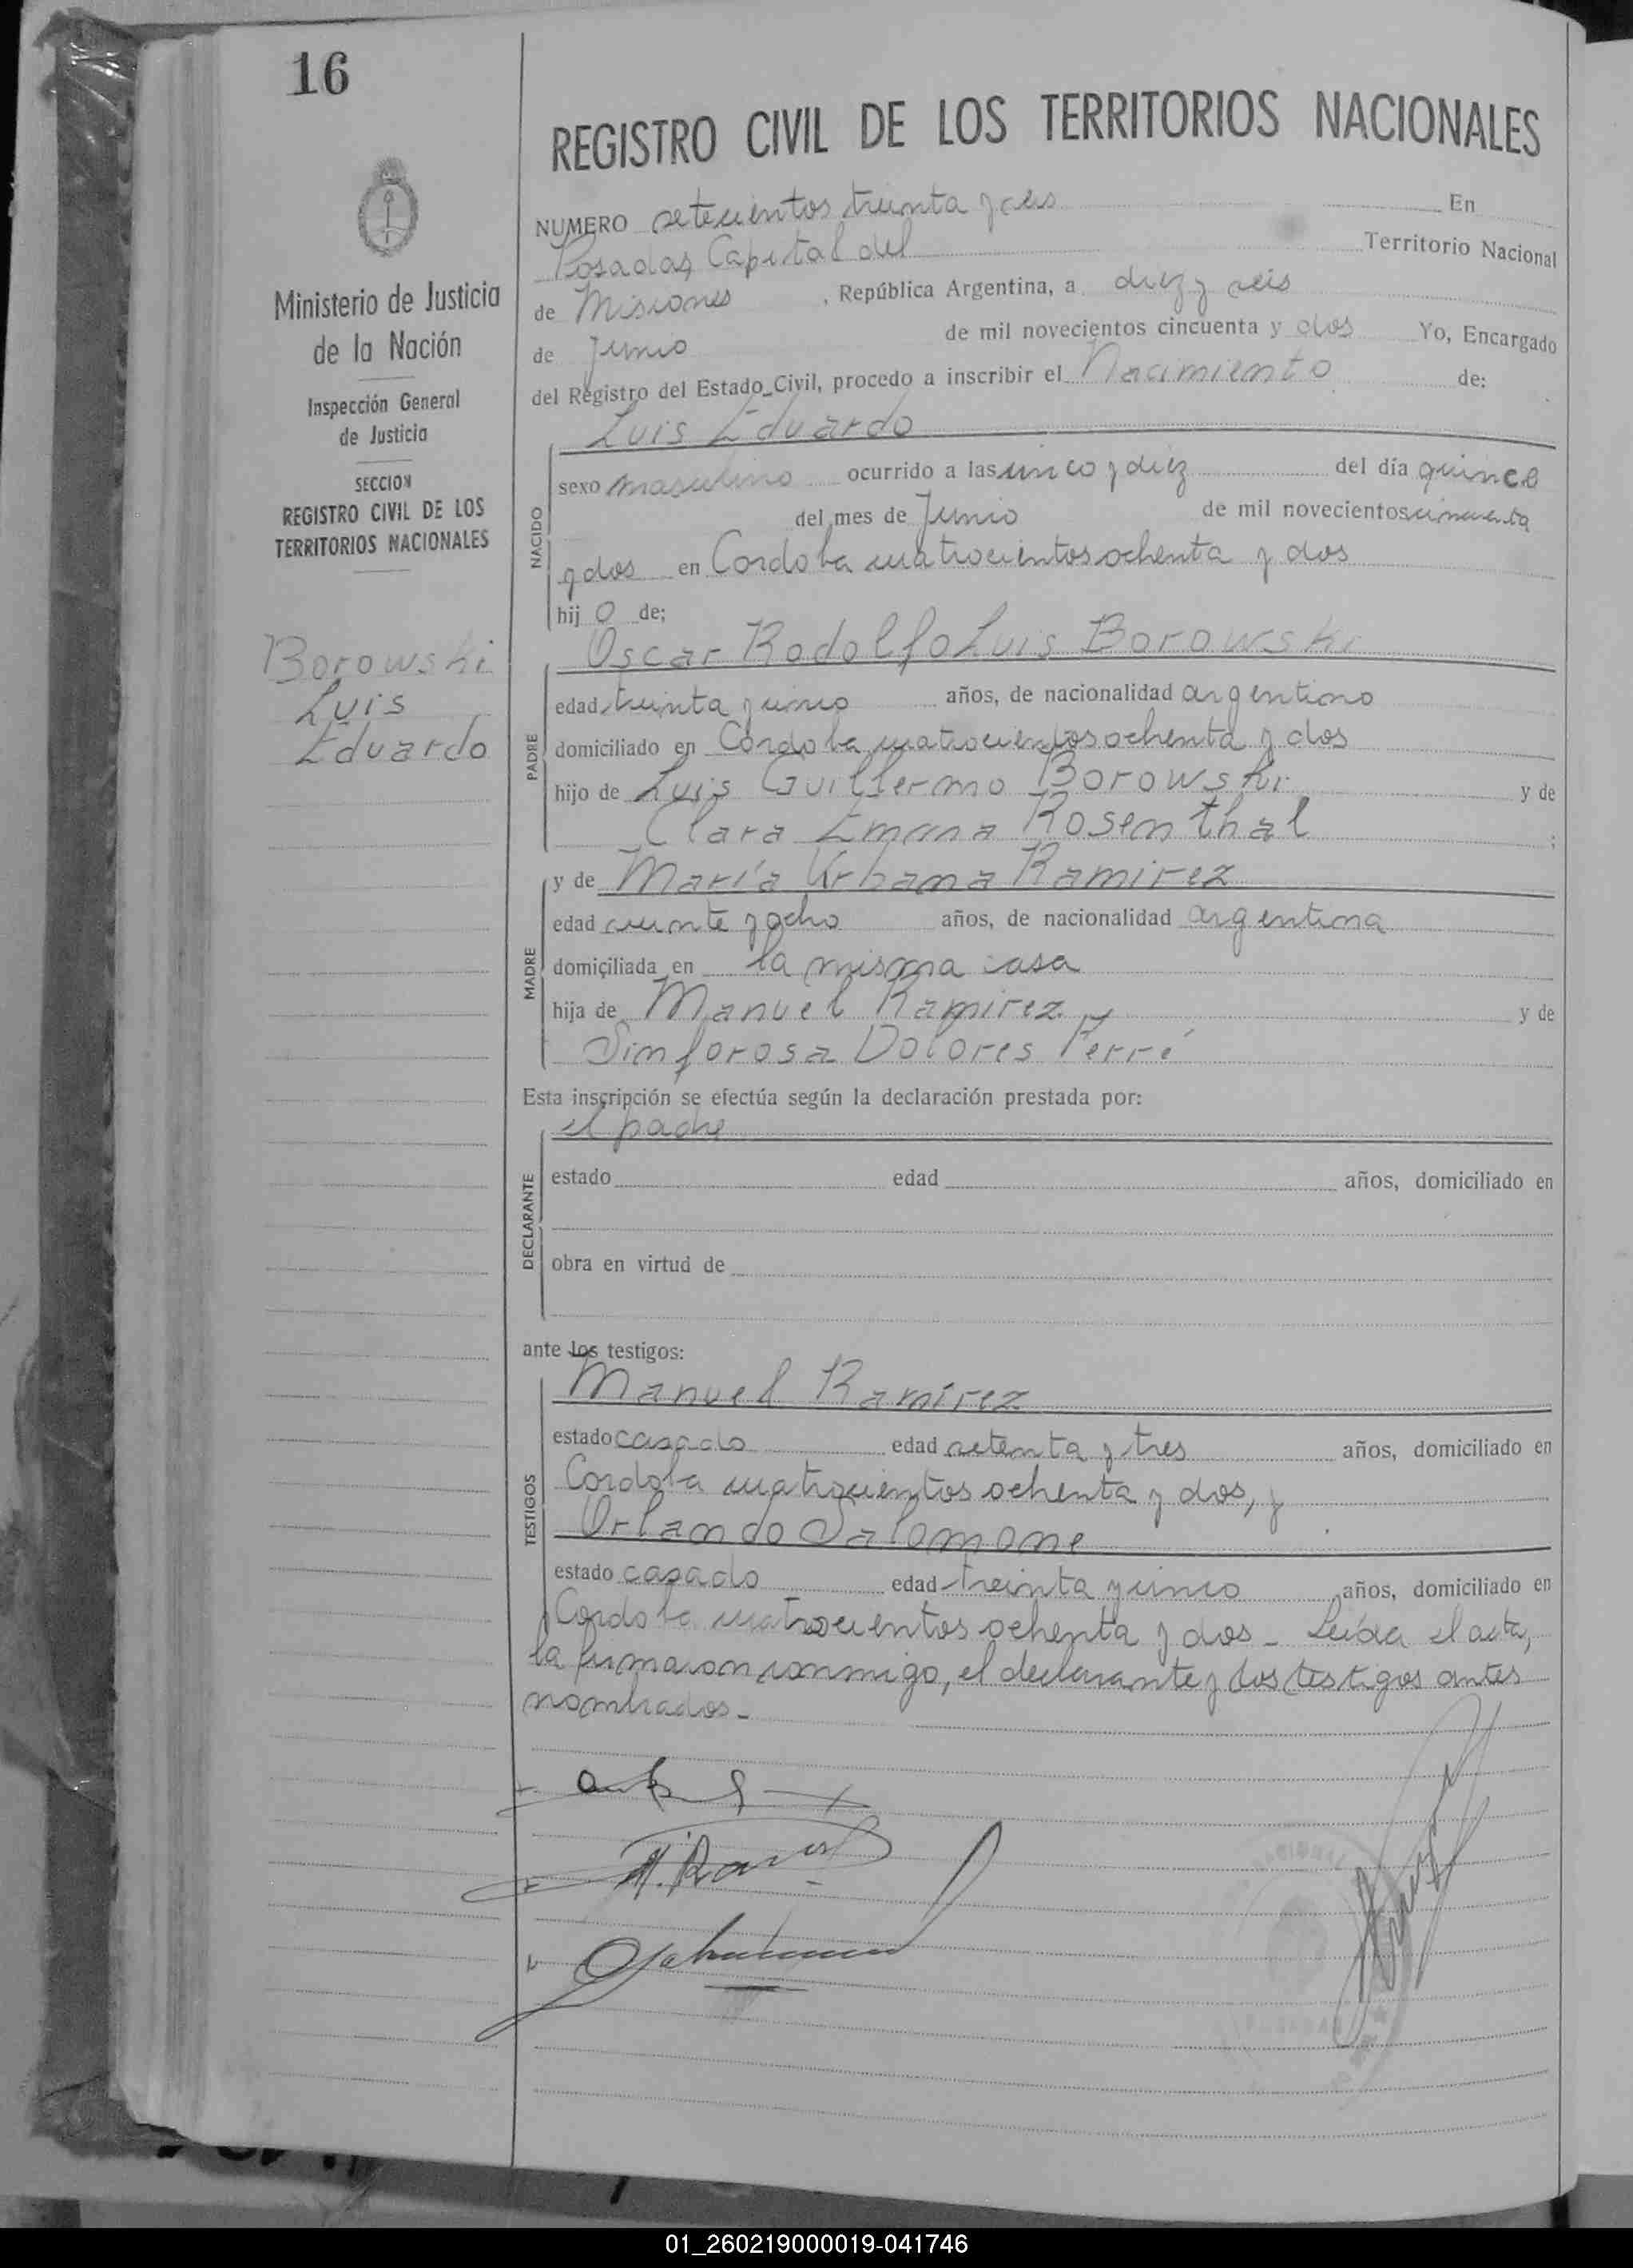 16
REGISTRO CIVIL DE LOS TERRITORIOS NACIONALES
Ministerio de Justicia
de la Nación
Inspección General
de Justicia
SECCION
REGISTRO CIVIL DE LOS
TERRITORIOS NACIONALES
Borowski
Luis
Eduardo
NUMERO setecientos treinta y seis En
Posadas, Capital del Territorio Nacional
de Misiones, República Argentina, a diez y seis
de Junio de mil novecientos cincuenta y dos Yo, Encargado
del Registro del Estado Civil, procedo a inscribir el Nacimiento de:
Luis Eduardo
NACIDO
sexo masculino ocurrido a las cinco y diez del día quince
del mes de Junio de mil novecientos cincuenta
y dos en Cordoba cuatrocientos ochenta y dos
hijo de;
Oscar Rodolfo Luis Borowski
PADRE
edad treinta y cinco años, de nacionalidad argentino
domiciliado en Córdoba cuatrocientos ochenta y dos
hijo de Luis Guillermo Borowski y de
Clara Emma Rosenthal ;
y de María Urbana Ramirez
MADRE
edad veinte y ocho años, de nacionalidad argentina
domiciliada en la misma casa
hija de Manuel Ramirez y de
Sinforosa Dolores Ferré
Esta inscripción se efectúa según la declaración prestada por:
el padre
DECLARANTE
estado edad años, domiciliado en
obra en virtud de
ante los testigos:
Manuel Ramírez
TESTIGOS
estado casado edad setenta y tres años, domiciliado en
Cordoba cuatrocientos ochenta y dos, y
Orlando Salomone
estado casado edad treinta y cinco años, domiciliado en
Cordoba cuatrocientos ochenta y dos - Leída el acta,
la firmaron conmigo, el declarante y los testigos antes
nombrados.-
01_260219000019-041746